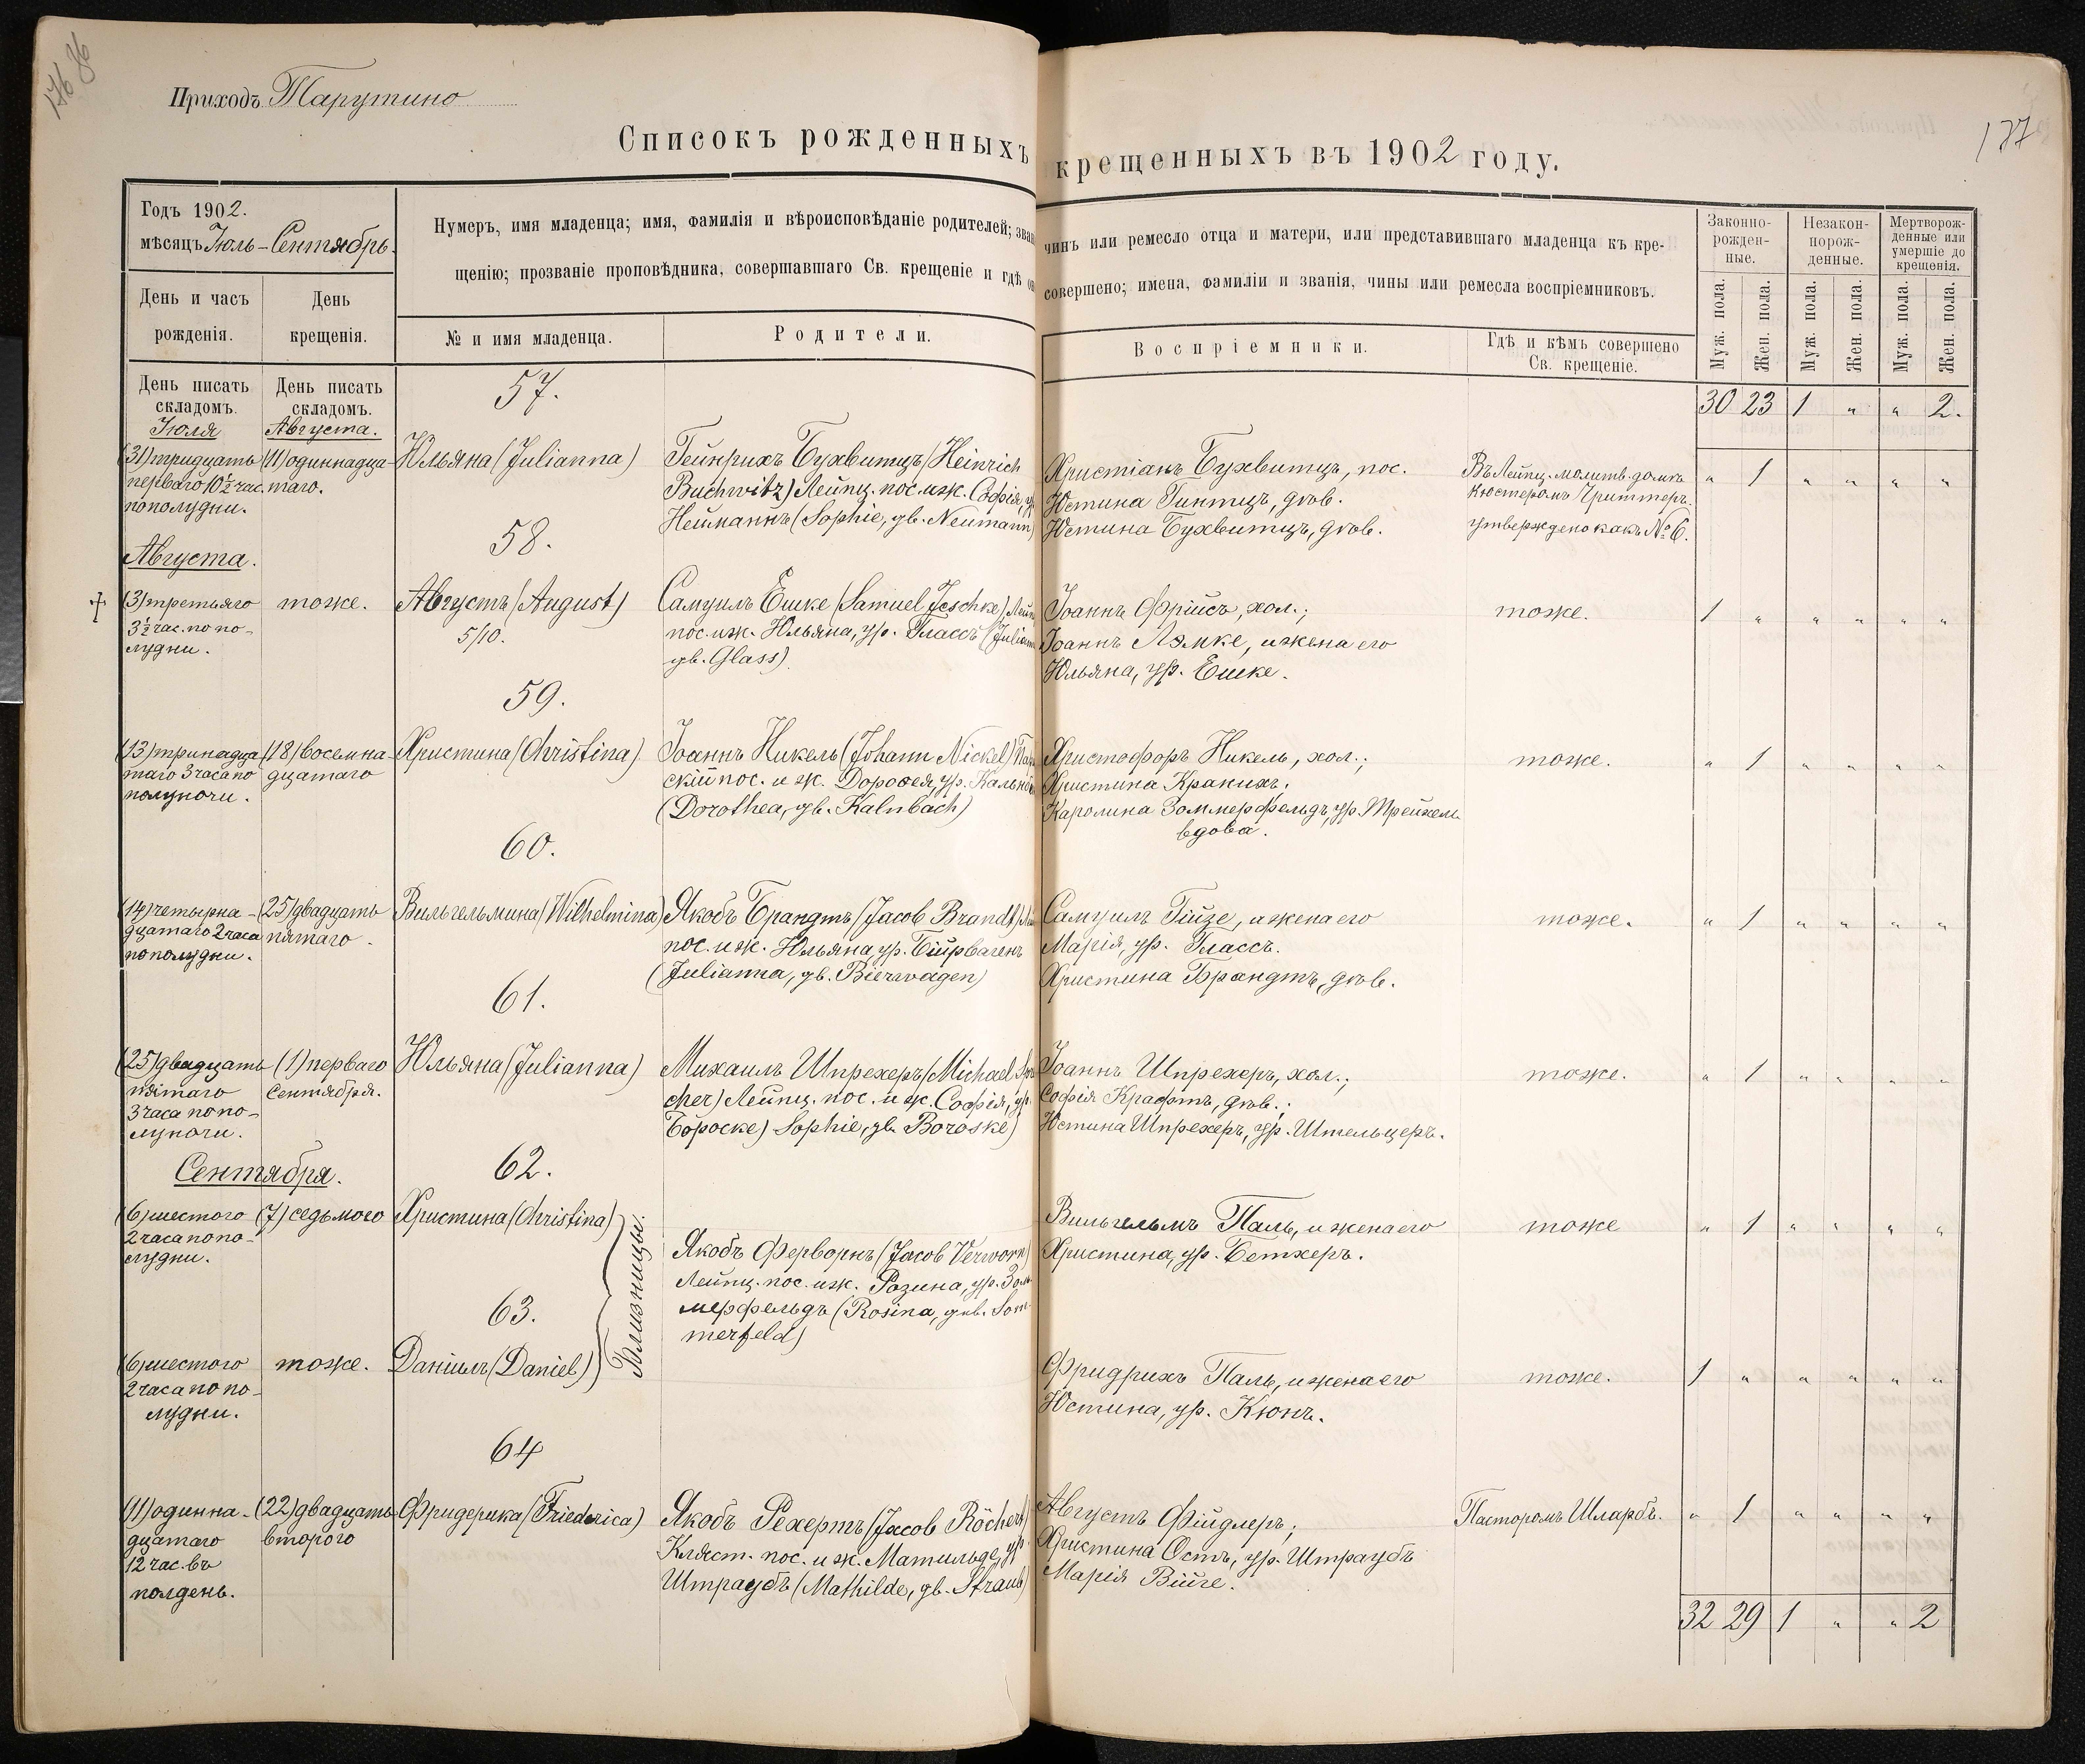 176 86
177
Приходъ Тарутино
Списокъ рожденныхъ
крещенныхъ въ 1902 году.
Годъ 1902.
мѣсяцъ Іюль - Сентябрь.
День и часъ
рожденія.
День
крещенія.
Нумеръ, имя младенца; имя, фамилія и вѣроисповѣданіе родителей;
щенію; прозваніе проповѣдника, совершавшаго Св. крещеніе и гдѣ
№ и имя младенца.
Родители.
чинъ или ремесло отца и матери, или представившаго младенца къ кре-
совершено; имена, фамиліи и званія, чины или ремесла воспріемниковъ.
Воспріемники.
Гдѣ и кѣмъ совершено
Св. крещеніе.
Законно-
рожден-
ные.
Незакон-
норож-
денные.
Мертворож-
денные или
умершіе до
крещенія.
Муж. пола.
Жен. пола.
Муж. пола.
Жен. пола.
Муж. пола.
Жен. пола.
День писать
складомъ.
День писать
складомъ.
30 23 1 " " 2.
57.
Іюля
Августа.
(31) тридцать
перваго 10½ час.
пополудни.
(11) одиннадца-
таго.
Юльяна (Julianna)
Гейнрихъ Бухвитцъ (Heinrich
Buchwitz) Лейпц. пос. и ж. Софія, ур.
Нейманнъ (Sophie, gb. Neumann)
Христіанъ Бухвитцъ, пос.
Юстина Гинтцъ, дѣв.
Юстина Бухвитцъ, дѣв.
Въ Лейпц. молитв. домѣ
кюстеромъ Чриттеръ.
утверждено какъ № 6.
" 1 " " " "
58.
Августа.
(3) третьяго
3½ час. по по-
лудни.
тоже.
Августъ (August)
5/10.
Самуилъ Ешке (Samuel Jeschke)
пос. и ж. Юльяна, ур. Глассъ
gb. Glass).
Іоаннъ Фрійсъ, хол.;
Іоаннъ Лэмке, и жена его
Юльяна, ур. Ешке.
тоже.
1 " " " " "
59.
(13) тринадца
таго 3 часа по
полуночи.
(18) восемна-
дцатаго
Христина (Christina)
Іоаннъ Никель (Johann Nickel)
скій пос. и ж. Дороѳея, ур.
(Dorothea, gb. Kalnbach)
Христофоръ Никель, хол.;
Христина Кракихъ.
Каролина Зоммерфельдъ, ур. Трейхель
вдова.
тоже.
" 1 " " " "
60.
(14) четырна-
дцатаго 2 часа
пополудни.
(25) двадцать
пятаго.
Вильгельмина (Wilhelmina)
Якобъ Брандтъ (Jacob Brandt)
пос. и ж. Юльяна, ур. Бійрвагенъ
(Julianna, gb. Bierwagen)
Самуилъ Гійзе, и жена его
Марія, ур. Глассъ.
Христина Брандтъ, дѣв.
тоже.
" 1 " " " "
61.
(25) двадцать
пятаго
3 часа по по-
луночи.
(1) перваго
Сентября.
Юльяна (Julianna)
Михаилъ Шпрехеръ (Michael
cher) Лейпц. пос. и ж. Софія, ур.
Бороске) Sophie, gb. Boroske)
Іоаннъ Шпрехеръ, хол.;
Софія Крафтъ, дѣв.;
Юстина Шпрехеръ, ур. Штельцеръ.
тоже.
" 1 " " " "
62.
Сентября.
(6) шестого
2 часа по по-
лудни.
(7) седьмого
Христина (Christina)
Близницы.
Якобъ Ферворнъ (Jacob Verworn)
Лейпц. пос. и ж. Розина, ур. Зом-
мерфельдъ (Rosina, gb. Som-
merfeld)
Вильгельмъ Паль, и жена его
Христина, ур. Бетхеръ.
тоже
" 1 " " " "
63.
(6) шестого
2 часа по по-
лудни.
тоже.
Даніилъ (Daniel)
Фридрихъ Паль, и жена его
Юстина, ур. Кюнъ.
тоже.
1 " " " " "
64
(11) одинна-
дцатаго
12 час. въ
полдень.
(22) двадцать
второго
Фридерика (Friederica)
Якобъ Рехертъ (Jacob Röchert)
Кляст. пос. и ж. Матильде, ур.
Штраубъ (Mathilde, gb. Straub)
Августъ Фійдлеръ;
Христина Остъ, ур. Штраубъ
Марія Війге.
Пасторомъ Шларбъ.
" 1 " " " "
32 29 1 " " 2